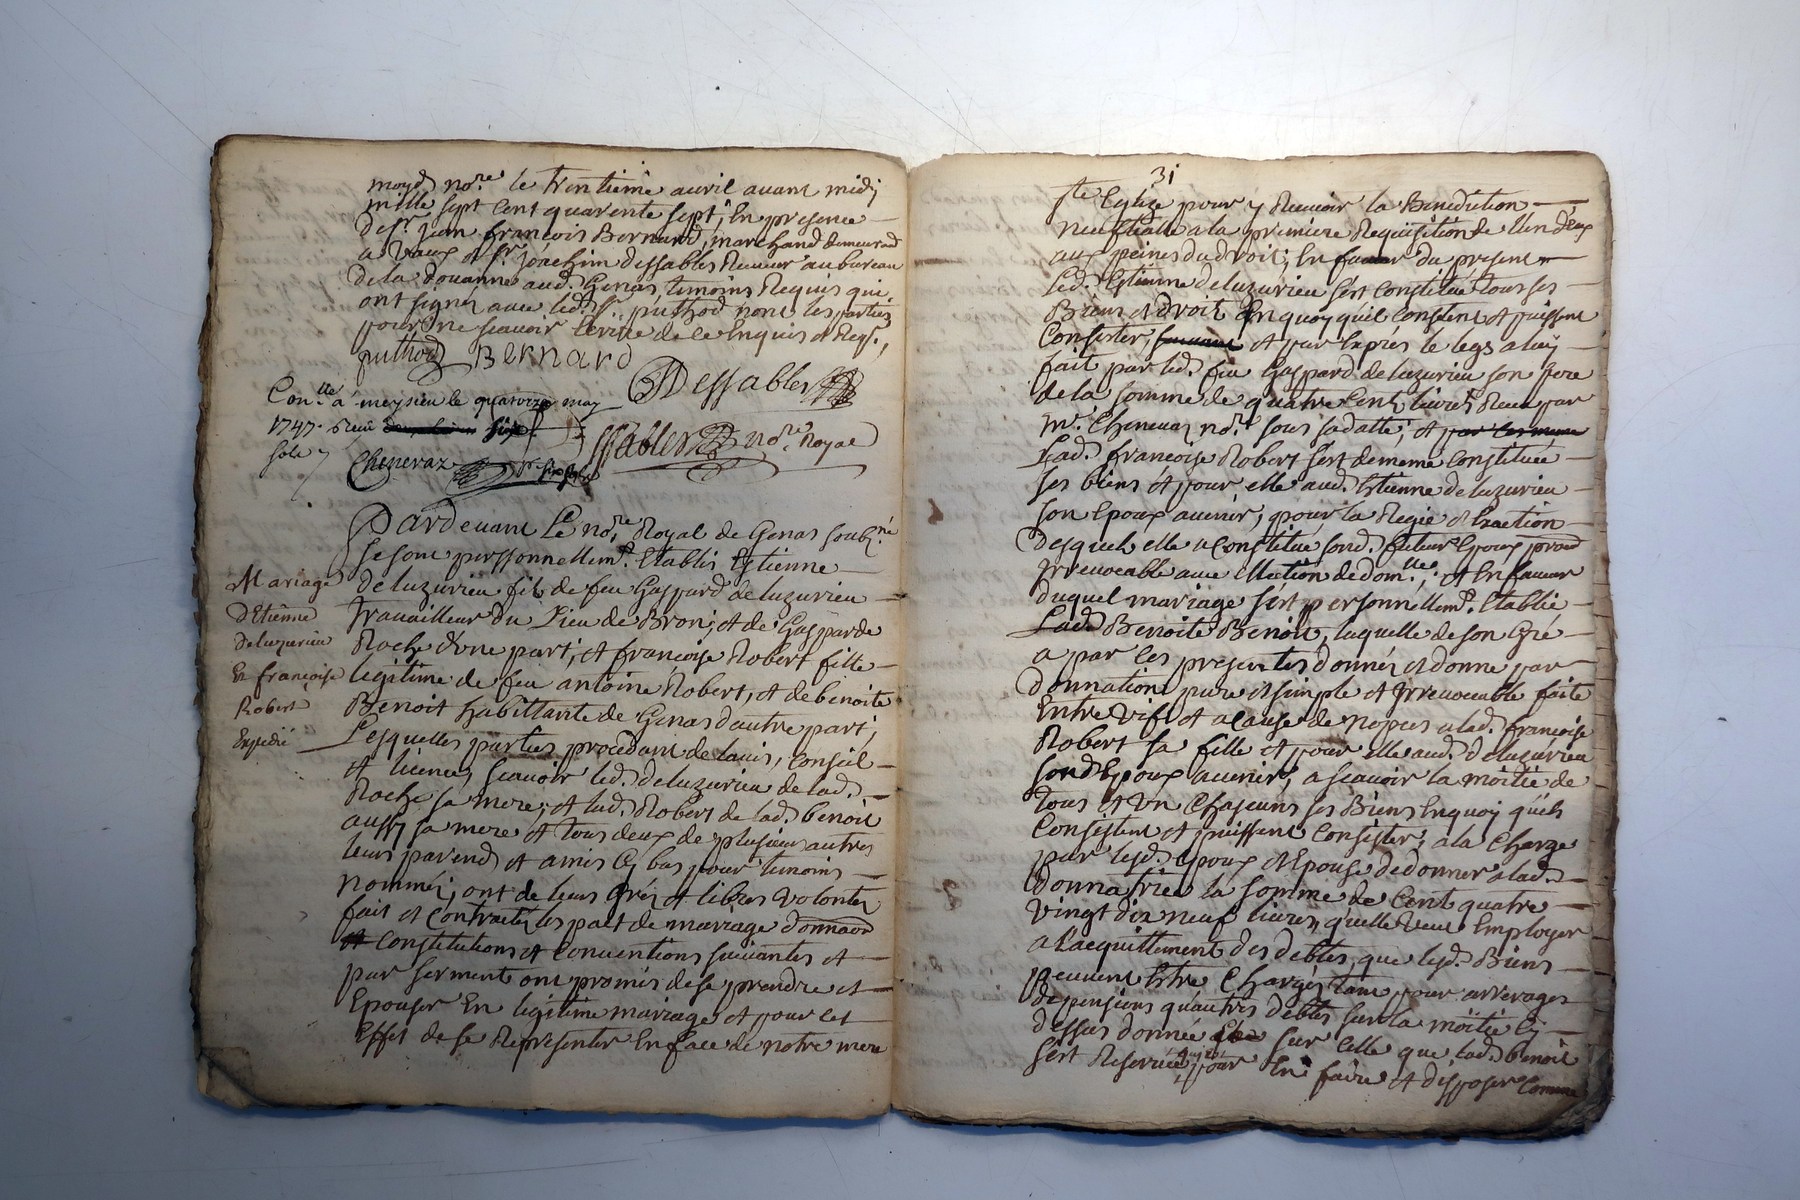 moyd no.re le trentieme auril auant midy
mille sept cent quarente sept, En presence
de sr. jean françois Bernard, marchand demeurad
a Vaux et sr. joachim dessables Receueur au bureau
de la douanne aud. Genas temoins Requis qui
ont signez auec led. sr. puthod non les parties
pour ne scauoir Ecrire de ce Enquis et Reqs.
puthod BERNARD
JDessables
Con.lle a meysieu le quatorze may
1747. Receu six
sols
Dessables no.re Royal
Cheneraz
Pardeuant Le no.re Royal de Genas soubz.né
se sont personnellemt. Etablis Estienne
deluzurieu fils de feu Gaspard deluzurieu
trauailleur du Lieu de Bron; et de Gasparde
Roche d'une part, et francoise Robert fille
legitime de feu antoine Robert, et de benoite
Benoit habittante de Genas d'autre part;
Mariage
D'Etienne
Deluzurieu
Et françoise
Robert
Expedié
Lesquelles parties procedant de lauis, conseil
et licences scauoir led. deluzurieu de lad.
Roche sa mere; et lad. Robert de lad. benoit
aussy sa mere et tous deux de plusieurs autres
leurs parends et amis Cy bas pour temoins
nommés; ont de leurs Grés et libres Volontes
fait et Contractes les pact de mariage donnaon
et Constitutions et Conuentions suiuantes et
par serment ont promis de se prendre et
Epouser En legitime mariage et pour cet
Effet de se Representer En face de notre mere
31
ste Eglize pour y Receuoir la Benediction
neuptialle a la premiere Requisition de l'un d'eux
aux peines du droit; En faueur du present
led. Estienne deluzurieu s'est Constitué tous ses
Biens et droit En quoy quils Consistent et puissent
Consister, et par Exprés le legs a luy
fait par led. feu Gaspard deluzurieu son pere
de la somme de quatre Cents liures Receu par
mr. Cheneraz no.re sous sa datte, et par les meme
Lad. francoise Robert s'est de meme Constituée
ses biens et pour elle aud. Estienne deluzurieu
son Epoux auenir, pour la Regie et Exaction
desquels elle a Constitué sond. futeur Epoux procur
Irreuocable auec Election de dom.lle; et En faueur
duquel mariage s'est personnellemt. Etablie
Lad. Benoite Benoit, laquelle de son Gré
a par les presentes donnés et donne par
donnation pure et simple et Irreuocable faite
Entre Vifs et a Cause de nopces a lad. francoise
Robert sa fille et pour elle aud. deluzurieu
sond. Epoux auenir, a scauoir la moitié de
tous et Un Chascuns ses Biens En quoy quils
Consistent et puissent Consister; a la Charge
par lesd. Epoux et Epouse de donner a lad.
donnatrice la somme de Cent quatre
Vingt dix neuf liures, quelle Veut Employer
a l'acquittement des debtes que lesd. Biens
peuuent Estre Chargés tant pour arrerages
de pensions qu'autres debtes sur la moitié Cy
dessus donnée que sur celle que lad. benoit
s'est Reseruée, pour En faire et disposer Comme